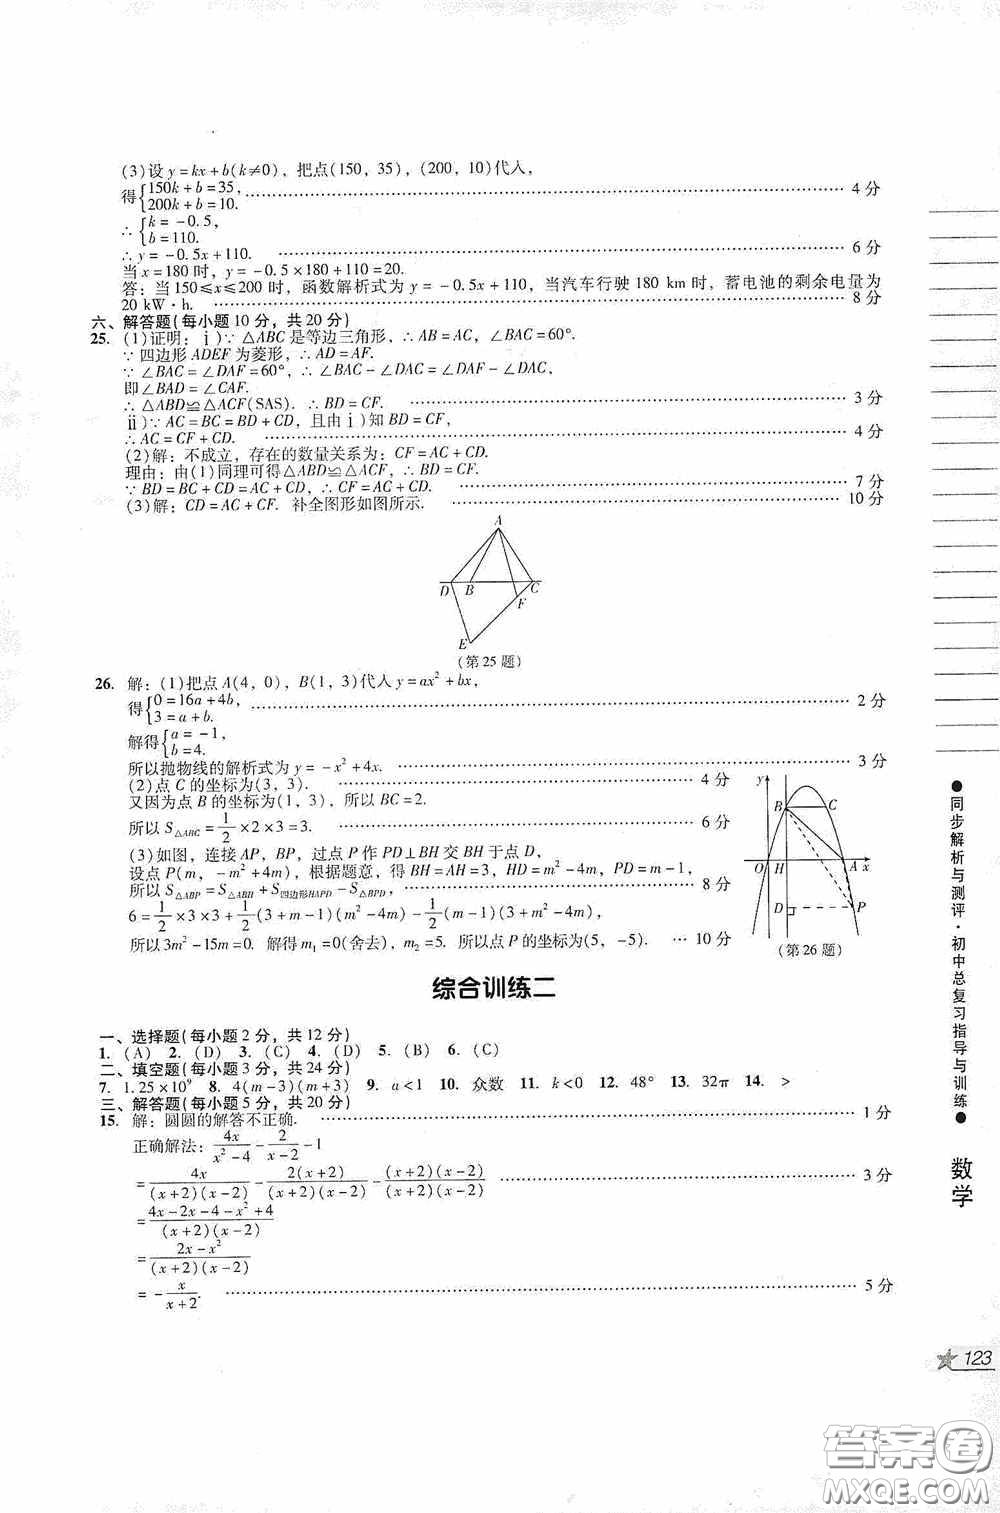 (3)设 y=kx+b(k≠0)，把点(150，35)，(200，10)代入，
得{150k+b=35，
200k+b=10. …… 4 分
∴{k=-0.5，
b=110.
∴y=-0.5x+110. …… 6 分
当 x=180 时，y=-0.5×180+110=20.
答：当 150≤x≤200 时，函数解析式为 y=-0.5x+110，当汽车行驶 180 km 时，蓄电池的剩余电量为
20 kW·h. …… 8 分
六、解答题(每小题 10 分，共 20 分)
25. (1)证明：ⅰ)∵△ABC 是等边三角形，∴AB=AC，∠BAC=60°.
∵四边形 ADEF 为菱形，∴AD=AF.
∵∠BAC=∠DAF=60°，∴∠BAC-∠DAC=∠DAF-∠DAC，
即∠BAD=∠CAF.
∴△ABD≌△ACF(SAS). ∴BD=CF. …… 3 分
ⅱ)∵AC=BC=BD+CD，且由ⅰ)知 BD=CF，
∴AC=CF+CD. …… 4 分
(2)解：不成立，存在的数量关系为：CF=AC+CD.
理由：由(1)同理可得△ABD≌△ACF，∴BD=CF.
∵BD=BC+CD=AC+CD，∴CF=AC+CD. …… 7 分
(3)解：CD=AC+CF. 补全图形如图所示. …… 10 分
A
D B C
F
E
(第 25 题)
26. 解：(1)把点 A(4，0)，B(1，3)代入 y=ax²+bx，
得{0=16a+4b，
3=a+b. …… 2 分
解得{a=-1，
b=4.
所以抛物线的解析式为 y=-x²+4x. …… 3 分
(2)点 C 的坐标为(3，3). …… 4 分
又因为点 B 的坐标为(1，3)，所以 BC=2.
所以 S△ABC=1/2×2×3=3. …… 6 分
(3)如图，连接 AP，BP，过点 P 作 PD⊥BH 交 BH 于点 D，
设点 P(m，-m²+4m)，根据题意，得 BH=AH=3，HD=m²-4m，PD=m-1，
所以 S△ABP=S△ABH+S四边形HAPD-S△BPD， …… 8 分
6=1/2×3×3+1/2(3+m-1)(m²-4m)-1/2(m-1)(3+m²-4m)，
所以 3m²-15m=0. 解得 m₁=0(舍去)，m₂=5. 所以点 P 的坐标为(5，-5). … 10 分
y
B C
O H A x
D P
(第 26 题)
综合训练二
一、选择题(每小题 2 分，共 12 分)
1. (A) 2. (D) 3. (C) 4. (D) 5. (B) 6. (C)
二、填空题(每小题 3 分，共 24 分)
7. 1.25×10⁹ 8. 4(m-3)(m+3) 9. a<1 10. 众数 11. k<0 12. 48° 13. 32π 14. >
三、解答题(每小题 5 分，共 20 分)
15. 解：圆圆的解答不正确. …… 1 分
正确解法：4x/(x²-4)-2/(x-2)-1
=4x/((x+2)(x-2))-2(x+2)/((x+2)(x-2))-(x+2)(x-2)/((x+2)(x-2)) …… 3 分
=(4x-2x-4-x²+4)/((x+2)(x-2))
=(2x-x²)/((x+2)(x-2))
=-x/(x+2). …… 5 分
●同步解析与测评·初中总复习指导与训练● 数学
123
答案圈
MXQE.COM